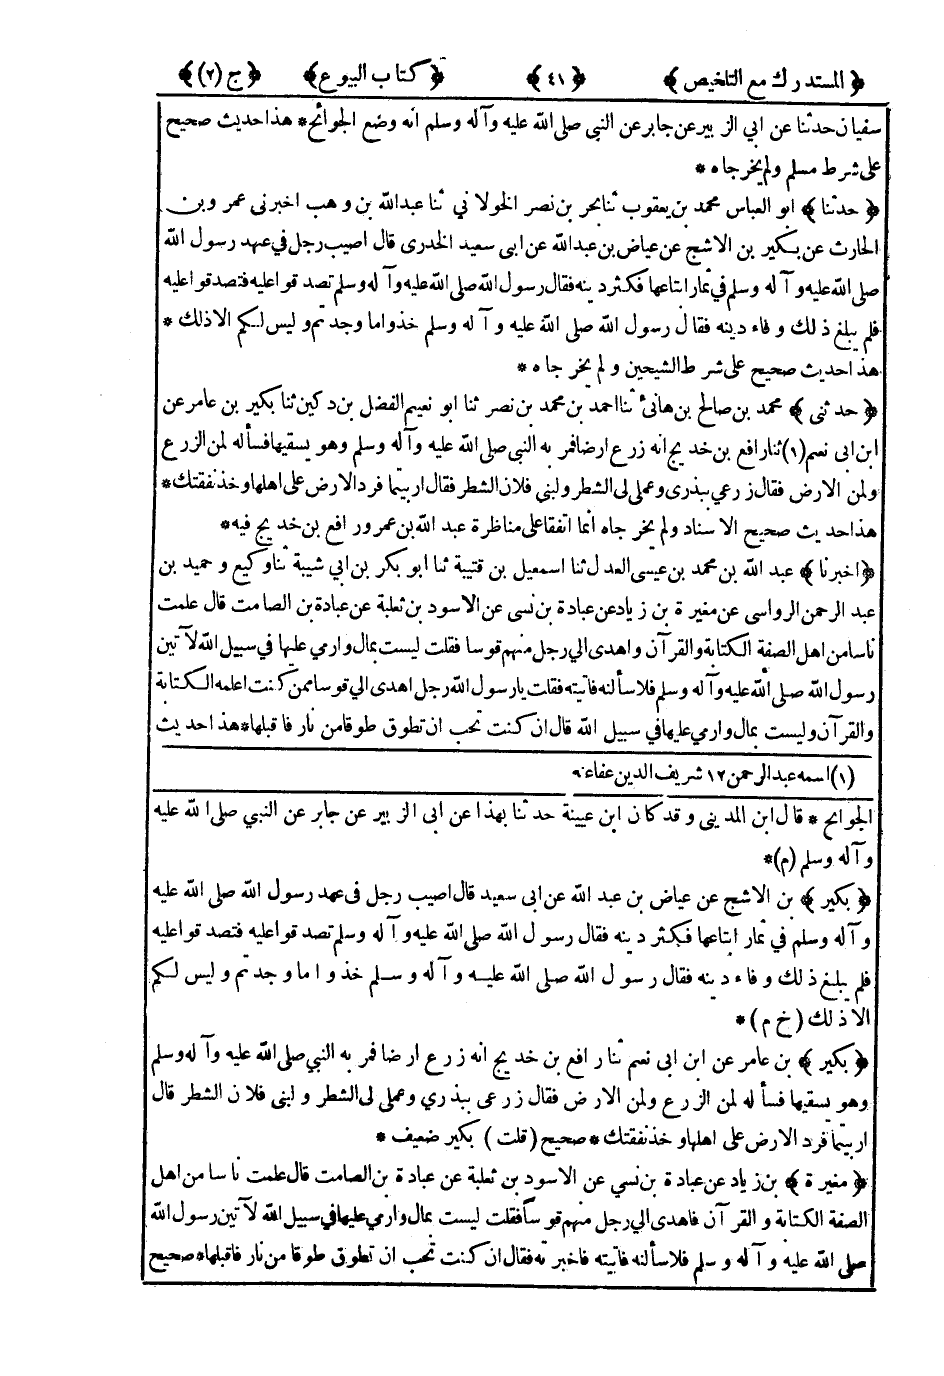 ﴿ المستدرك مع التلخيص ﴾ ﴿ ٤١ ﴾ ﴿ كتاب البيوع ﴾ ﴿ ج (٢) ﴾
سفيان حدثنا عن ابي الزبير عن جابر عن النبي صلى الله عليه وآله وسلم انه وضع الجوائح * هذا حديث صحيح
على شرط مسلم ولم يخرجاه *
﴿ حدثنا ﴾ ابو العباس محمد بن يعقوب ثنا بحر بن نصر الخولاني ثنا عبدالله بن وهب اخبرنى عمرو بن
الحارث عن بكير بن الاشج عن عياض بن عبدالله عن ابى سعيد الخدرى قال اصيب رجل في عهد رسول الله
صلى الله عليه وآله وسلم في ثمار ابتاعها فكثر دينه فقال رسول الله صلى الله عليه وآله وسلم تصدقوا عليه فتصدقوا عليه
فلم يبلغ ذلك وفاء دينه فقال رسول الله صلى الله عليه وآله وسلم خذوا ما وجدتم وليس لكم الا ذلك *
هذا حديث صحيح على شرط الشيخين ولم يخرجاه *
﴿ حدثنى ﴾ محمد بن صالح بن هانئ ثنا احمد بن محمد بن نصر ثنا ابو نعيم الفضل بن دكين ثنا بكير بن عامر عن
ابن ابى نعم (١) ثنا رافع بن خديج انه زرع ارضا فمر به النبي صلى الله عليه وآله وسلم وهو يسقيها فسأله لمن الزرع
ولمن الارض فقال زرعي ببذرى وعملى لى الشطر ولبنى فلان الشطر فقال اربيتما فرد الارض على اهلها وخذ نفقتك *
هذا حديث صحيح الاسناد ولم يخرجاه انما اتفقا على مناظرة عبد الله بن عمر ورافع بن خديج فيه *
﴿ اخبرنا ﴾ عبد الله بن محمد بن عيسى العدل ثنا اسمعيل بن قتيبة ثنا ابو بكر بن ابي شيبة ثنا وكيع وحميد بن
عبد الرحمن الرواسى عن مغيرة بن زياد عن عبادة بن نسى عن الاسود بن ثعلبة عن عبادة بن الصامت قال علمت
ناسا من اهل الصفة الكتابة والقرآن واهدى الي رجل منهم قوسا فقلت ليست بمال وارمي عليها في سبيل الله لآتين
رسول الله صلى الله عليه وآله وسلم فلاسألنه فاتيته فقلت يا رسول الله رجل اهدى الي قوسا ممن كنت اعلمه الكتابة
والقرآن وليست بمال وارمي عليها في سبيل الله قال ان كنت تحب ان تطوق طوقا من نار فاقبلها * هذا حديث
(١) اسمه عبد الرحمن ١٢ شريف الدين
الجوائح * قال ابن المدينى وقد كان ابن عيينة حدثنا بهذا عن ابى الزبير عن جابر عن النبي صلى الله عليه
وآله وسلم (م) *
﴿ بكير ﴾ بن الاشج عن عياض بن عبد الله عن ابى سعيد قال اصيب رجل فى عهد رسول الله صلى الله عليه
وآله وسلم في ثمار ابتاعها فكثر دينه فقال رسول الله صلى الله عليه وآله وسلم تصدقوا عليه فتصدقوا عليه
فلم يبلغ ذلك وفاء دينه فقال رسول الله صلى الله عليه وآله وسلم خذوا ما وجدتم وليس لكم
الا ذلك (خ م) *
﴿ بكير ﴾ بن عامر عن ابن ابى نعم ثنا رافع بن خديج انه زرع ارضا فمر به النبي صلى الله عليه وآله وسلم
وهو يسقيها فسأله لمن الزرع ولمن الارض فقال زرعى ببذري وعملى لى الشطر ولبنى فلان الشطر قال
اربيتما فرد الارض على اهلها وخذ نفقتك * صحيح (قلت) بكير ضعيف *
﴿ مغيرة ﴾ بن زياد عن عبادة بن نسي عن الاسود بن ثعلبة عن عبادة بن الصامت قال علمت ناسا من اهل
الصفة الكتابة والقرآن فاهدى الي رجل منهم قوسا فقلت ليست بمال وارمي عليها في سبيل الله لآتين رسول الله
صلى الله عليه وآله وسلم فلاسألنه فاتيته فاخبرته فقال ان كنت تحب ان تطوق طوقا من نار فاقبلها * صحيح